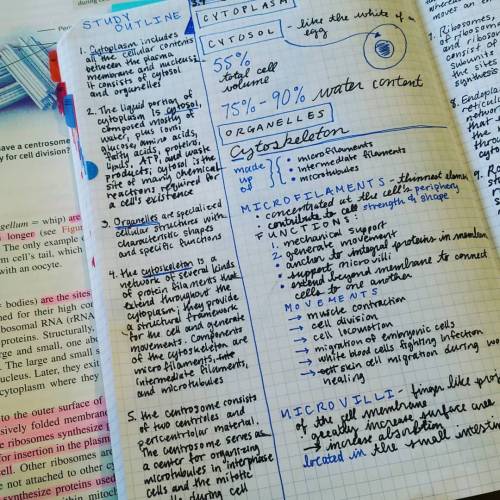 STUDY
OUTLINE
1. Cytoplasm includes
all the cellular contents
between the plasma
membrane and nucleus;
it consists of cytosol
and organelles
2. The liquid portion of
cytoplasm is cytosol,
composed mostly of
water, plus ions,
glucose, amino acids,
fatty acids, proteins,
lipids, ATP, and waste
products; cytosol is the
site of many chemical
reactions required for
a cell's existence
3. Organelles are specialized
cellular structures with
characteristic shapes
and specific functions
4. the cytoskeleton is a
network of several kinds
of protein filaments that
extend throughout the
cytoplasm; they provide
a structural framework
for the cell and generate
movements. Components
of the cytoskeleton are
microfilaments,
intermediate filaments,
and microtubules
5. the centrosome consists
of two centrioles and
pericentriolar material.
The centrosome serves as
a center for organizing
microtubules in interphase
cells and the mitotic
during cell
CYTOPLASM
CYTOSOL - like the white of an
egg
55%
total cell
volume
75% - 90% water content
ORGANELLES
Cytoskeleton
made
up
of
• microfilaments
• intermediate filaments
• microtubules
MICROFILAMENTS - thinnest elem
• concentrated at the cell's periphery
• contribute to cell strength & shape
FUNCTIONS:
1. mechanical support
2. generate movement
• anchor to integral proteins in membran
• support microvilli
• extend beyond membrane to connect
cells to one another
MOVEMENTS
→ muscle contraction
→ cell division
→ cell locomotion
→ migration of embryonic cells
→ white blood cells fighting infection
→ skin cell migration during wo
healing
MICROVILLI - finger like proj
of the cell membrane
• greatly increase surface area
→ increase absorption
located in the small intestin
7. Ribosomes,
of ribosoma
and riboso
consist of
subunits
the sites
synthesis
8. Endopla
reticul
network
that e
the
thro
9. Ro
have a centrosome
y for cell division?
gellum = whip) are
longer (see Figur
The only example o
m cell's tail, which
with an oocyte.
= bodies) are the sites
med for their high co
bosomal RNA (rRNA
proteins. Structurally,
arge and small, one abo
l. The large and small s
nucleus. Later, they exit
cytoplasm where they
to the outer surface of
sively folded membran
e ribosomes synthesize p
for insertion in the plasm
cell. Other ribosomes are
not attached to other cy
synthesize proteins used
within mitoch